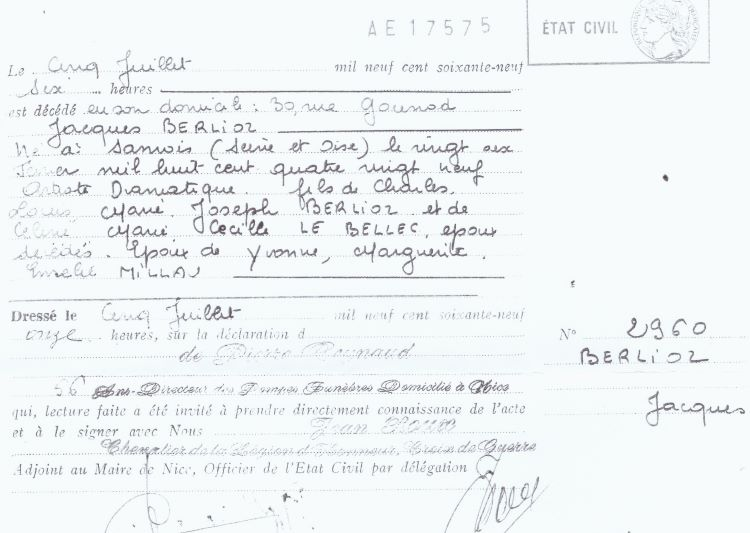 AE 17575
ÉTAT CIVIL
Le Cinq Juillet mil neuf cent soixante-neuf
Six heures
est décédé en son domicile : 30, rue Gounod
Jacques BERLIOZ
Né à Sannois (Seine et Oise) le vingt six
mil huit cent quatre vingt neuf
Artiste Dramatique. fils de Charles,
Louis, Marie, Joseph BERLIOZ et de
Celine Marie Cecille LE BELLEC, epoux
décédés. Epoux de Yvonne, Marguerite,
MILLAU
Dressé le Cinq Juillet mil neuf cent soixante-neuf
onze heures, sur la déclaration d
de Pierre Reynaud
56 Ans-Directeur des Pompes Funèbres Domicilié à Nice
qui, lecture faite a été invité à prendre directement connaissance de l'acte
et à le signer avec Nous Jean
Chevalier de la Légion d'Honneur, Croix de Guerre
Adjoint au Maire de Nice, Officier de l'Etat Civil par délégation
N° 2960
BERLIOZ
Jacques